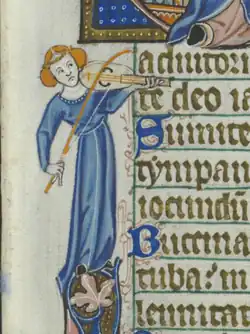 adiutori
te deo ia
Sumite
tympan
iocundu
Buccina
tuba: in
lennitati